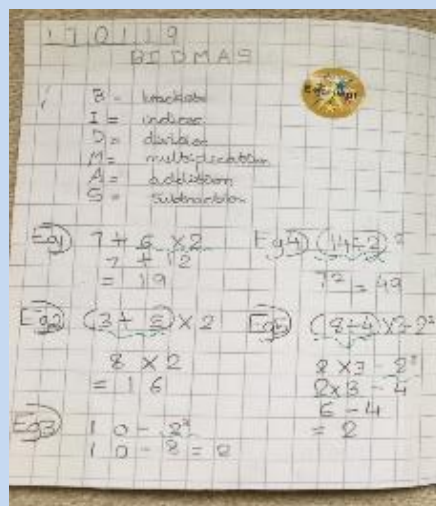 17 01 19
BIDMAS
B = brackets
I = indices
D = division
M = multiplication
A = addition
S = subtraction
Eg1 7 + 6 × 2
7 + 12
= 19
Eg2 (3 + 5) × 2
8 × 2
= 16
Eg3 10 - 2³
10 - 8 = 2
Eg4 (14÷2)²
7² = 49
Eg5 (8÷4)×3-2²
2×3 - 4
6 - 4
= 2